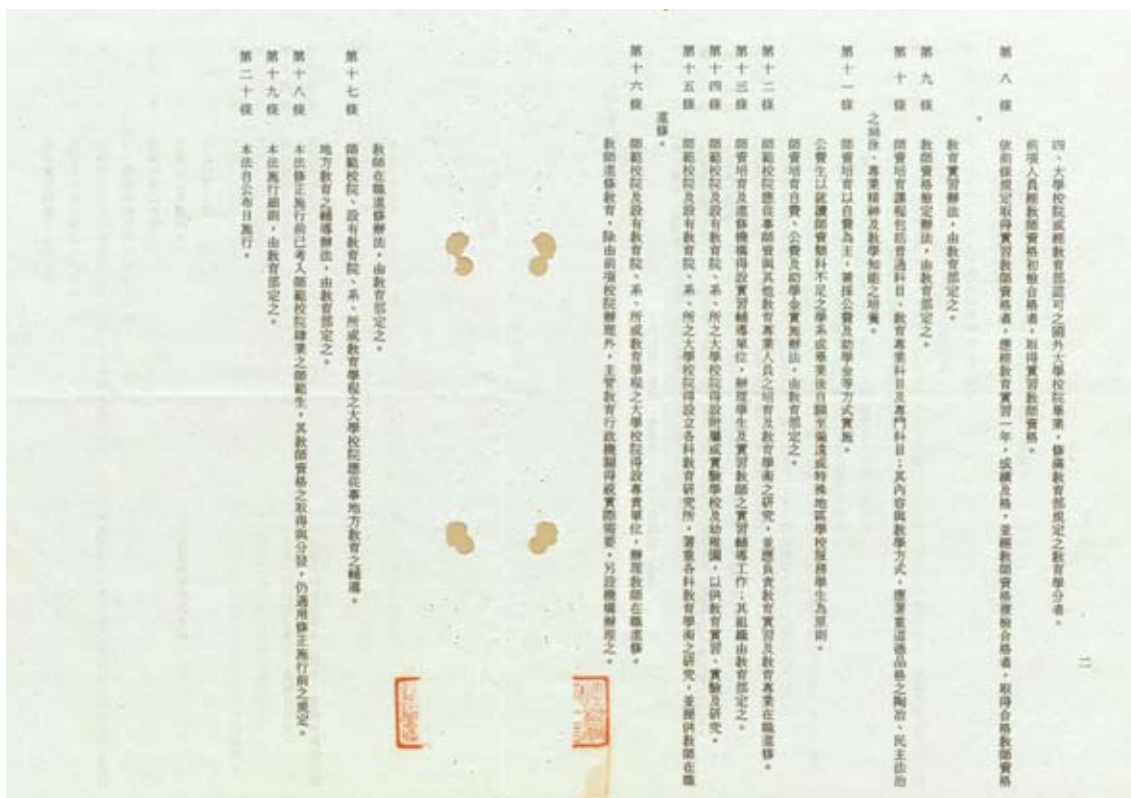 二
四、大學校院或經教育部認可之國外大學校院畢業，修滿教育部規定之教育學分者。
前項人員經教師資格初檢合格者，取得實習教師資格。
第八條　依前條規定取得實習教師資格者，應經教育實習一年，成績及格，並經教師資格複檢合格者，取得合格教師資格
。
教育實習辦法，由教育部定之。
第九條　教師資格檢定辦法，由教育部定之。
第十條　師資培育課程包括普通科目、教育專業科目及專門科目；其內容與教學方式，應著重道德品格之陶冶、民主法治
之涵泳、專業精神及教學知能之培養。
第十一條　師資培育以自費為主，兼採公費及助學金等方式實施。
公費生以就讀師資類科不足之學系或畢業後自願至偏遠或特殊地區學校服務學生為原則。
師資培育自費、公費及助學金實施辦法，由教育部定之。
第十二條　師範校院應從事師資與其他教育專業人員之培育及教育學術之研究，並應負責教育實習及教育專業在職進修。
第十三條　師資培育及進修機構得設實習輔導單位，辦理學生及實習教師之實習輔導工作；其組織由教育部定之。
第十四條　師範校院及設有教育院、系、所之大學校院得設附屬或實驗學校及幼稚園，以供教育實習、實驗及研究。
第十五條　師範校院及設有教育院、系、所之大學校院得設立各科教育研究所，著重各科教育學術之研究，並提供教師在職
進修。
第十六條　師範校院及設有教育院、系、所或教育學程之大學校院得設專責單位，辦理教師在職進修。
教師進修教育，除由前項校院辦理外，主管教育行政機關得視實際需要，另設機構辦理之。
教師在職進修辦法，由教育部定之。
第十七條　師範校院、設有教育院、系、所或教育學程之大學校院應從事地方教育之輔導。
地方教育之輔導辦法，由教育部定之。
第十八條　本法修正施行前已考入師範校院肄業之師範生，其教師資格之取得與分發，仍適用修正施行前之規定。
第十九條　本法施行細則，由教育部定之。
第二十條　本法自公布日施行。